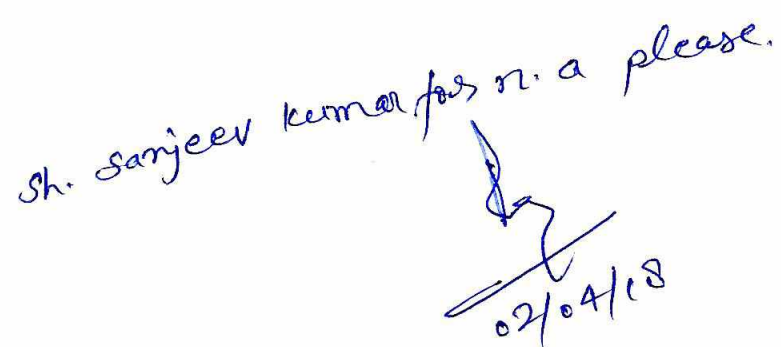 Sh. Sanjeev Kumar for n. a please.
02/04/18